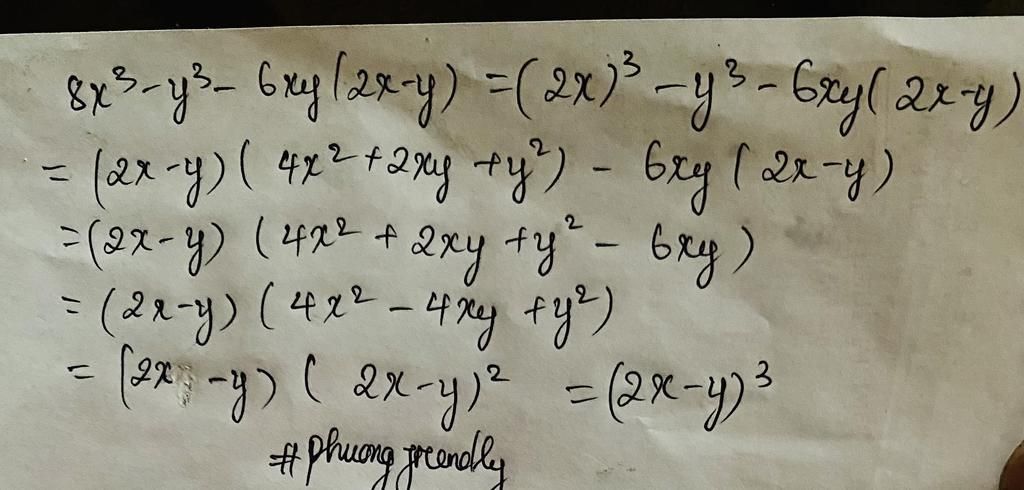 8x³-y³- 6xy(2x-y) =(2x)³ -y³-6xy(2x-y)
= (2x-y)( 4x²+2xy +y²) - 6xy (2x-y)
=(2x-y) (4x² + 2xy +y² - 6xy)
= (2x-y) (4x² - 4xy +y²)
= (2x -y) ( 2x-y)² =(2x-y)³
#phuong